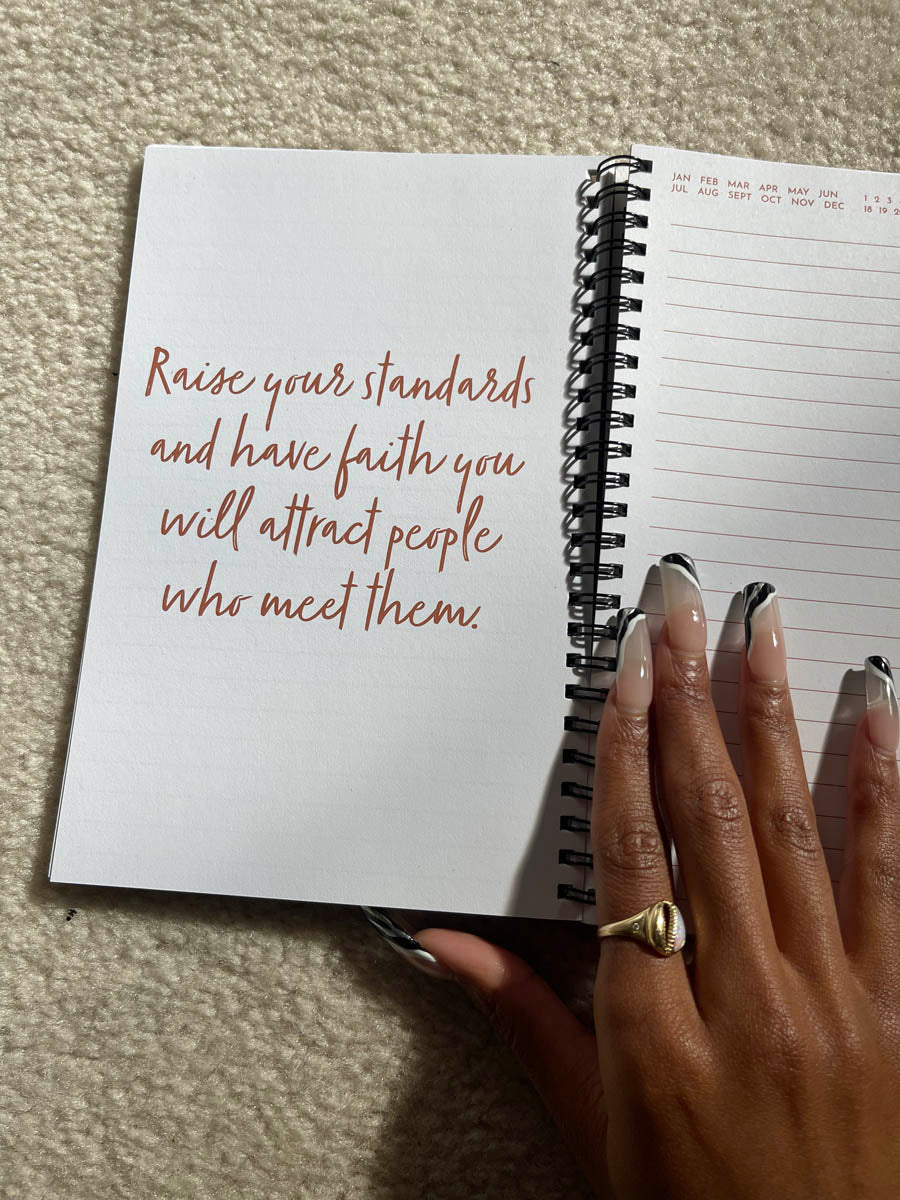 Raise your standards
and have faith you
will attract people
who meet them.
JAN FEB MAR APR MAY JUN
JUL AUG SEPT OCT NOV DEC
1 2 3
18 19